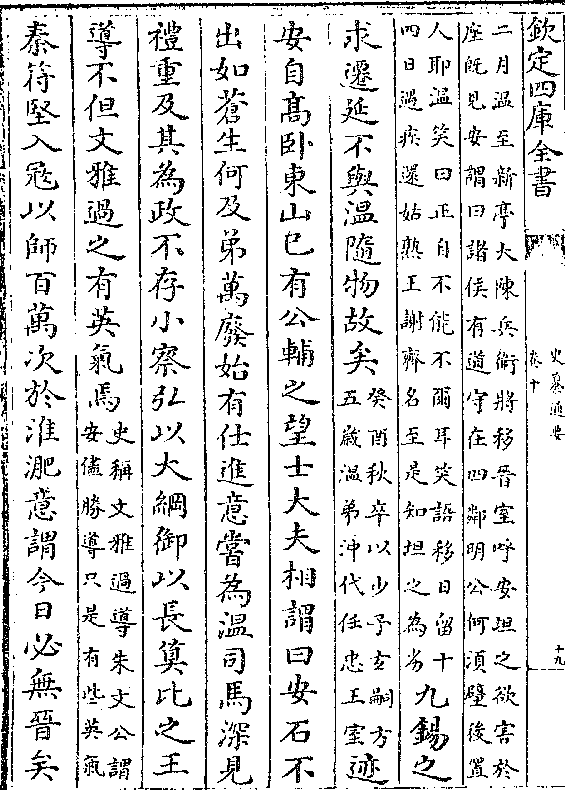 欽定四庫全書
史纂通要
卷十
十九
二月溫至新亭大陳兵衛將移晉室呼安坦之欲害於
座既見安謂曰諸侯有道守在四鄰明公何須壁後置
人耶溫笑曰正自不能不爾耳笑語移日留十
四日遇疾還姑熟王謝齊名至是知坦之為劣
九錫之
求遷延不與溫隨物故矣
癸酉秋卒以少子玄嗣方
五歲溫弟沖代任忠王室
迹
安自高卧東山已有公輔之望士大夫相謂曰安石不
出如蒼生何及弟萬廢始有仕進意嘗為溫司馬深見
禮重及其為政不存小察弘以大綱御以長筭比之王
導不但文雅過之有英氣焉
史稱文雅過導朱文公謂
安儘勝導只是有些英氣
秦符堅入寇以師百萬次於淮淝意謂今日必無晉矣